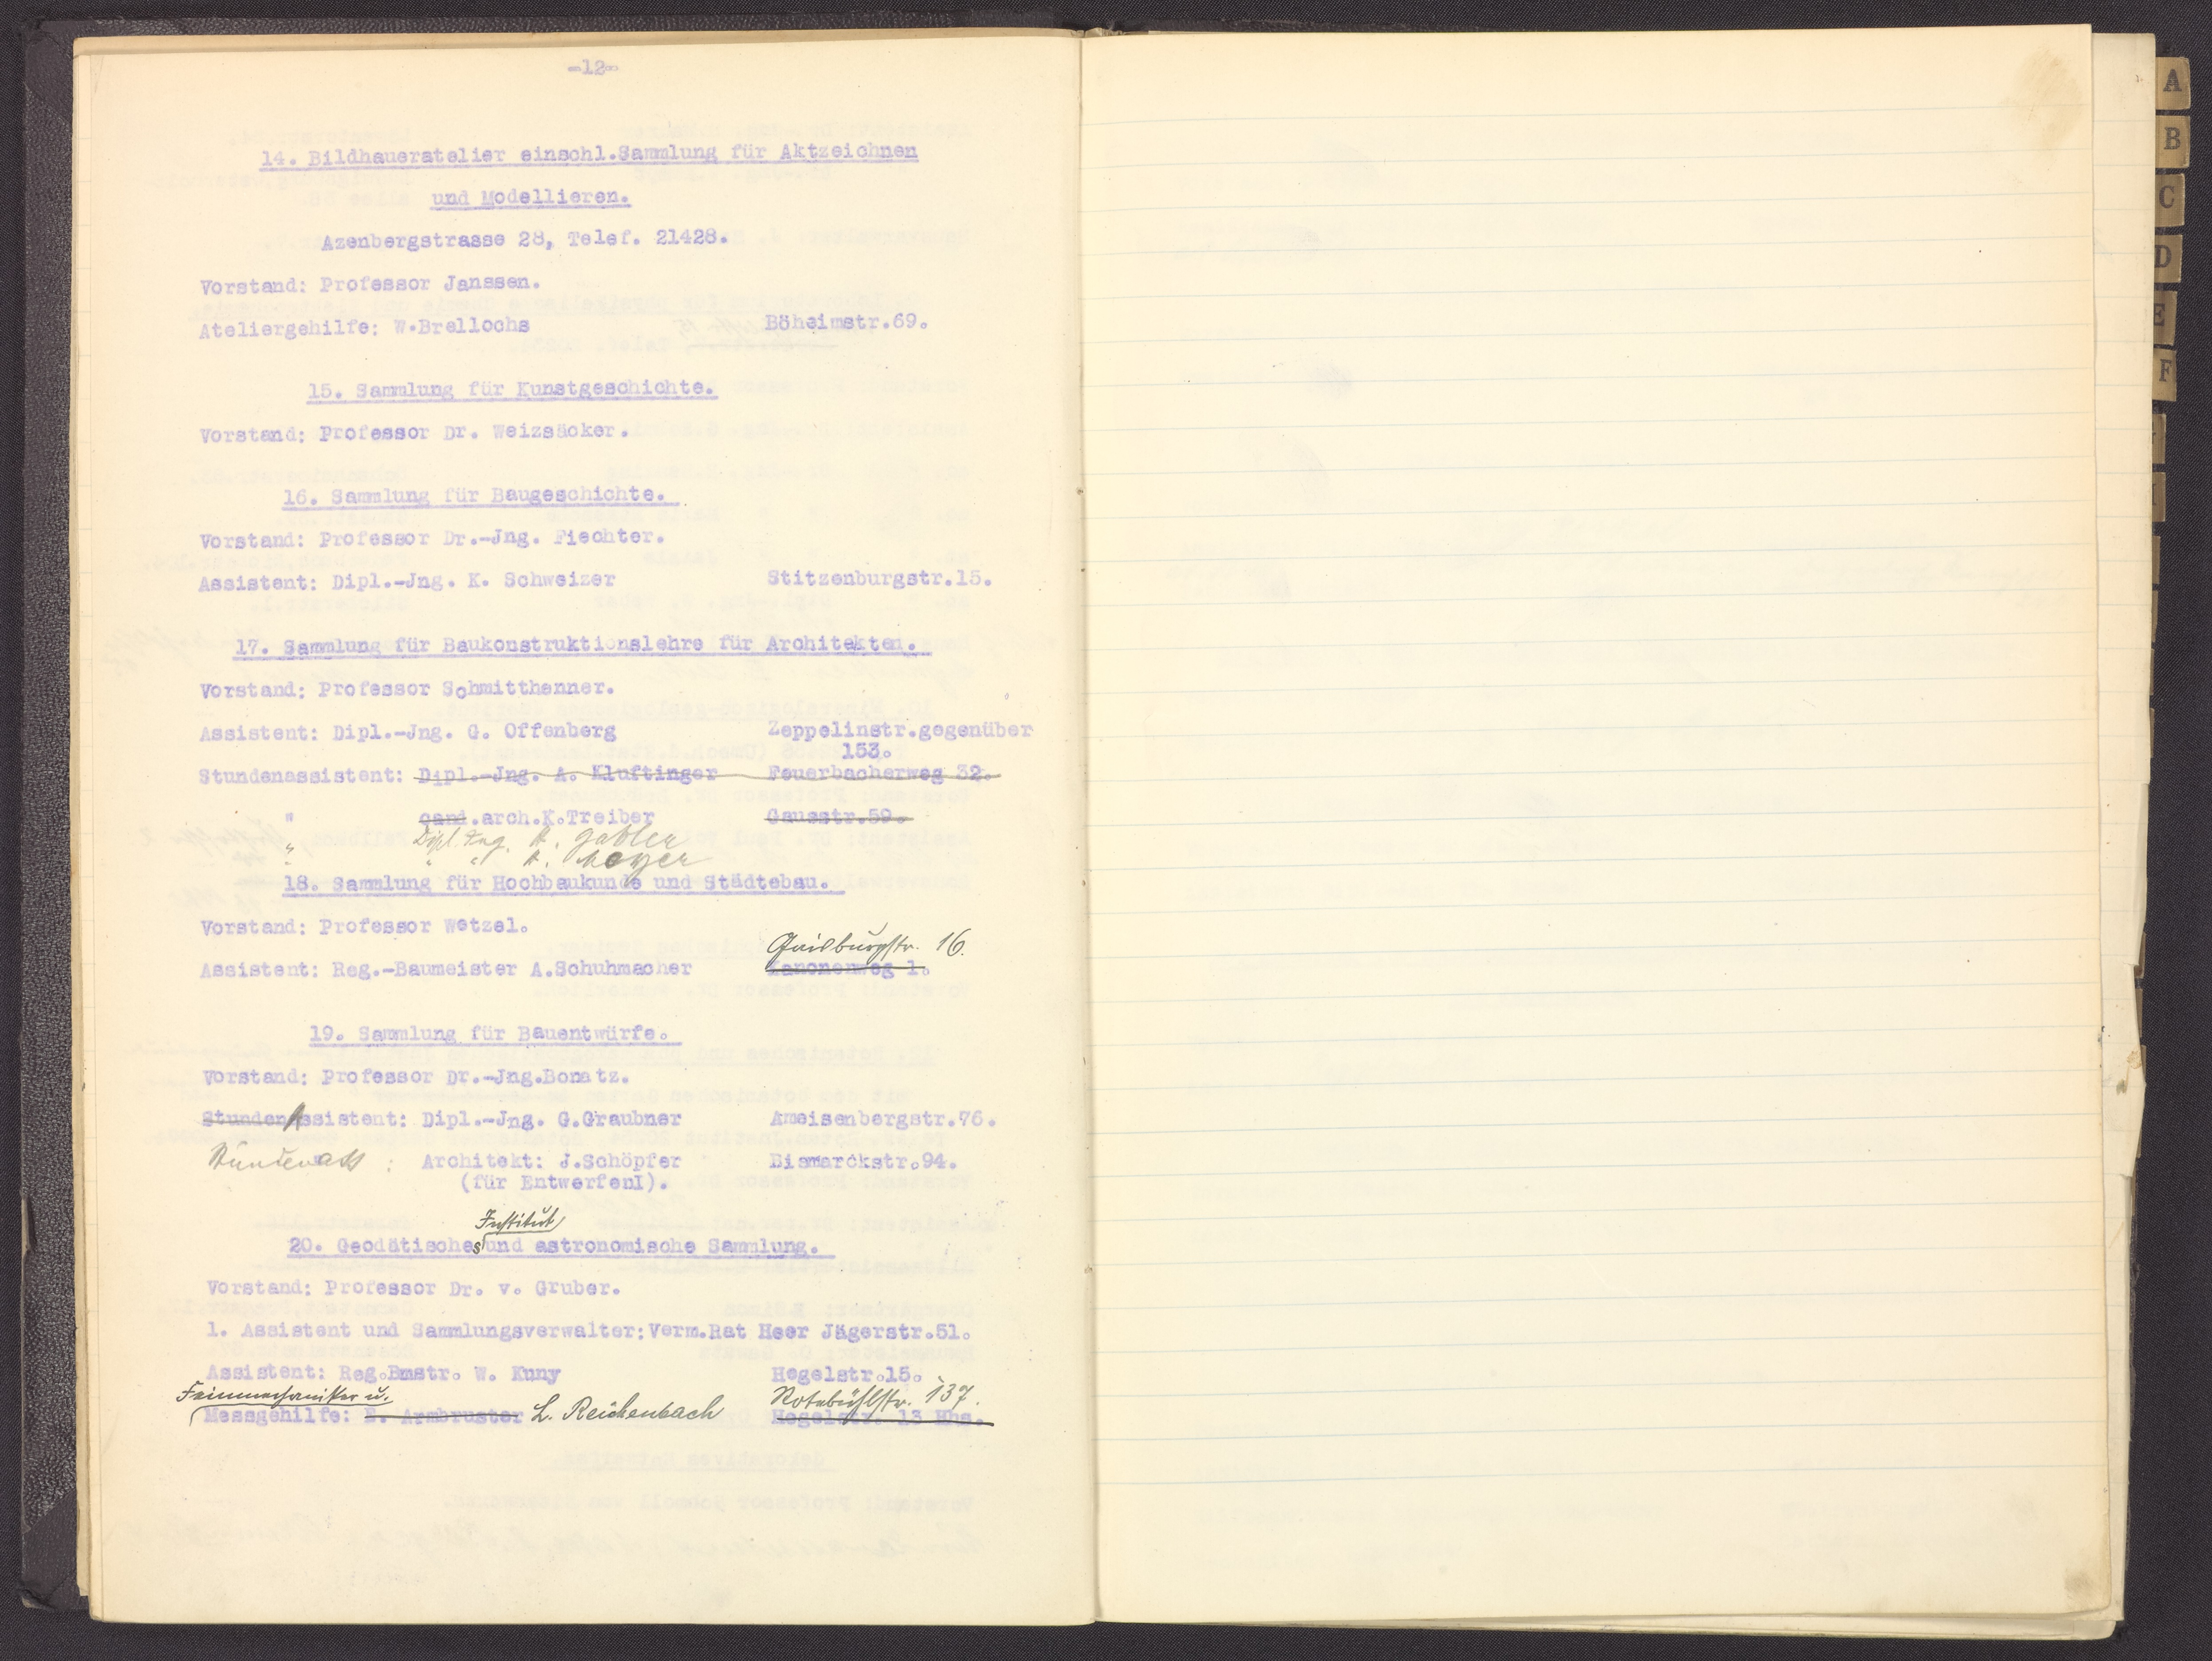 -12-
14. Bildhaueratelier einschl.Sammlung für Aktzeichnen
und Modellieren.
Azenbergstrasse 28, Telef. 21428.
Vorstand: Professor Janssen.
Ateliergehilfe: W.Brellochs Böheimstr.69.
15. Sammlung für Kunstgeschichte.
Vorstand: Professor Dr. Weizsäcker.
16. Sammlung für Baugeschichte.
Vorstand: Professor Dr.-Jng. Fiechter.
Assistent: Dipl.-Jng. K. Schweizer Stitzenburgstr.15.
17. Sammlung für Baukonstruktionslehre für Architekten.
Vorstand: Professor Schmitthenner.
Assistent: Dipl.-Jng. G. Offenberg Zeppelinstr.gegenüber
153.
Stundenassistent: Dipl.-Jng. A. Kluftinger Feuerbacherweg 32.
" cand.arch.K.Treiber Gausstr.59.
" Dipl. Ing. H. Gabler
" " H. Mayer
18. Sammlung für Hochbaukunde und Städtebau.
Vorstand: Professor Wetzel.
Gaisburgstr. 16.
Assistent: Reg.-Baumeister A.Schuhmacher Kanonenweg 1.
19. Sammlung für Bauentwürfe.
Vorstand: Professor Dr.-Jng.Bonatz.
StundenAssistent: Dipl.-Jng. G.Graubner Ameisenbergstr.76.
Stundenass : Architekt: J.Schöpfer Bismarckstr.94.
(für EntwerfenI).
Institut
20. Geodätisches und astronomische Sammlung.
Vorstand: Professor Dr. v. Gruber.
1. Assistent und Sammlungsverwalter:Verm.Rat Heer Jägerstr.51.
Assistent: Reg.Bmstr. W. Kuny Hegelstr.15.
Feinmechaniker u. Rotebühlstr. 137.
Messgehilfe: E. Armbruster L. Reichenbach Hegelstr. 13 Hhs.
A
B
C
D
E
F